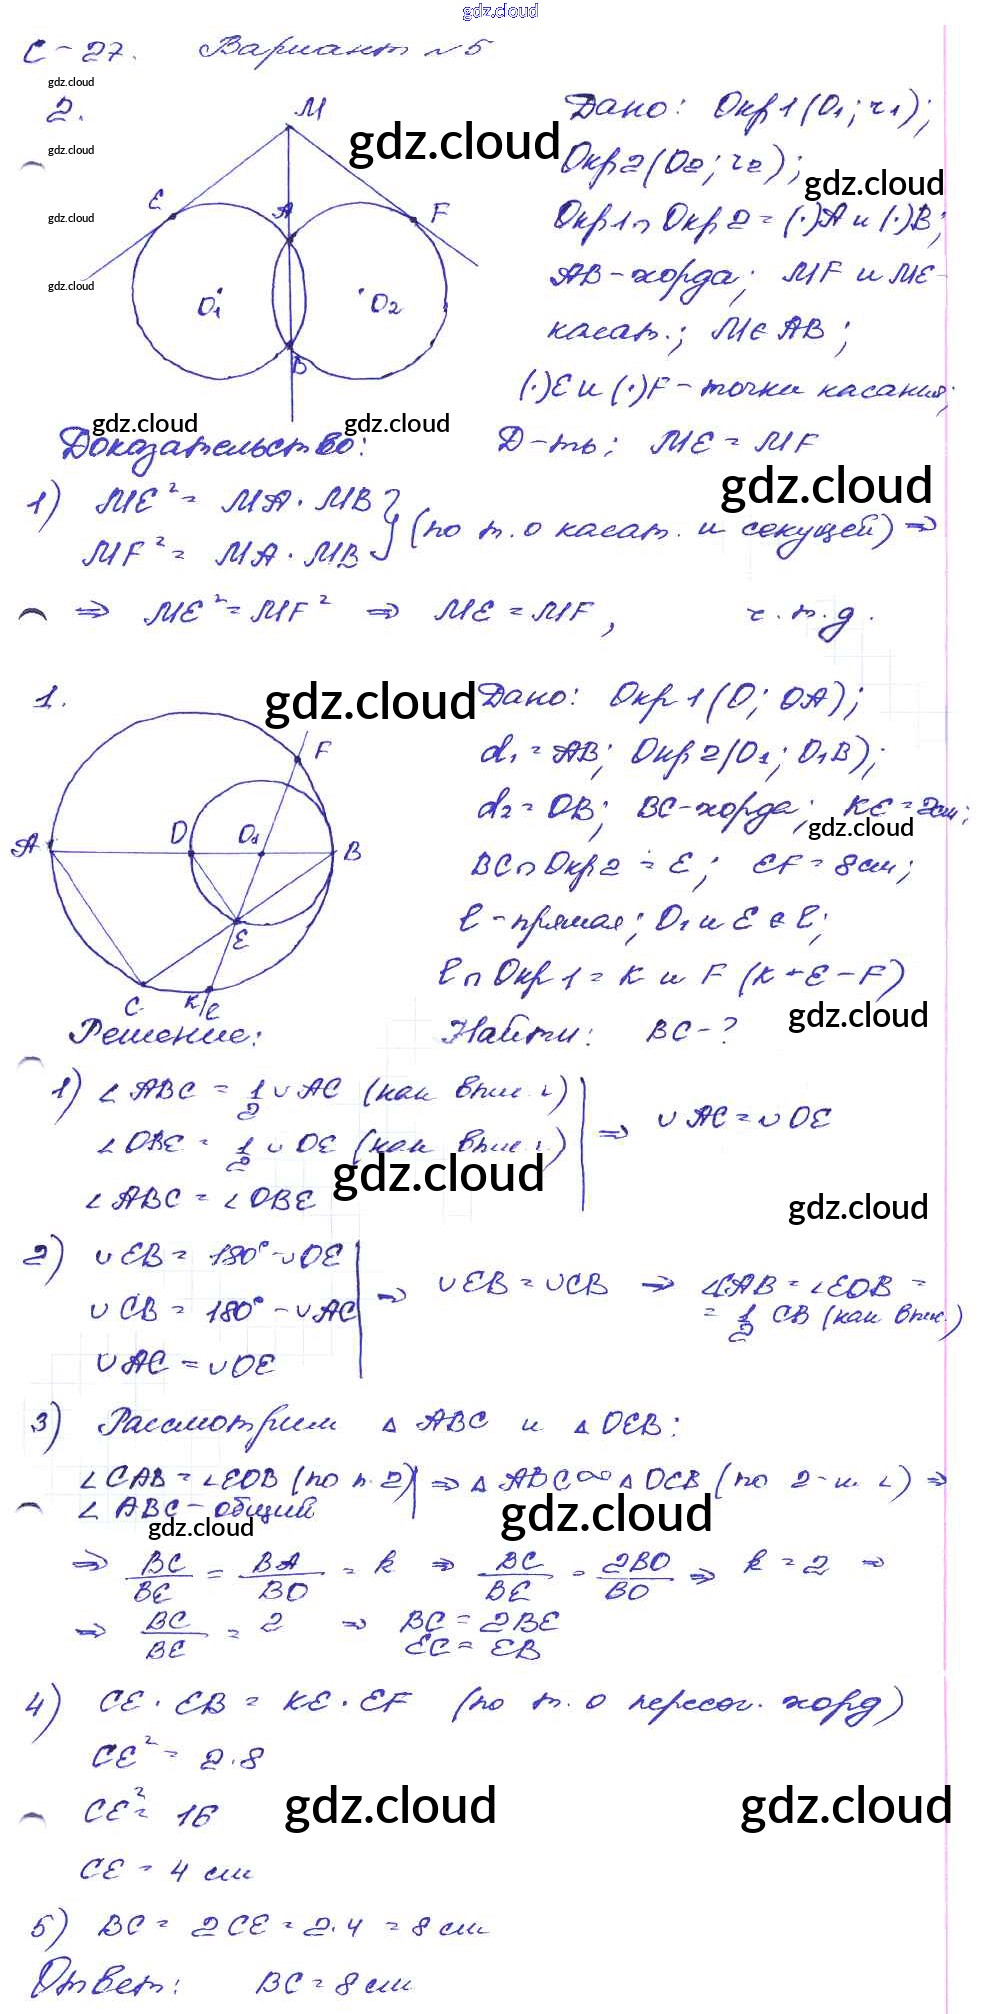 gdz.cloud
С-27. Вариант №5
gdz.cloud
2.
gdz.cloud
gdz.cloud
gdz.cloud
M
E
A
F
O₁
O₂
B
gdz.cloud
Дано: Окр1(O₁; r₁);
Окр2(O₂; r₂);
gdz.cloud
Окр1∩Окр2=(·)A и (·)B;
AB-хорда; MF и ME-
касат.; M∈AB;
(·)E и (·)F-точки касания;
gdz.cloud gdz.cloud
Д-ть: ME = MF
Доказательство:
gdz.cloud
1) ME² = MA · MB
MF² = MA · MB
} (по т. о касат. и секущей) ⇒
⇒ ME² = MF² ⇒ ME = MF, ч.т.д.
1.
gdz.cloud
F
A
O
O₁
B
E
C
K/ℓ
Дано: Окр1(O; OA);
d₁=AB; Окр2(O₁; O₁B);
d₂=OB; BC-хорда; KE=2см;
gdz.cloud
BC∩Окр2 = E; EF=8см;
ℓ-прямая; O₁ и E∈ℓ;
ℓ∩Окр1 = K и F (K÷E-F)
gdz.cloud
Решение: Найти: BC-?
1) ∠ABC = 1/2 ∪AC (как впис. ∠)
∠OBE = 1/2 ∪OE (как впис. ∠)
∠ABC = ∠OBE
⇒ ∪AC = ∪OE
gdz.cloud
gdz.cloud
2) ∪EB = 180° - ∪OE
∪CB = 180° - ∪AC
∪AC = ∪OE
⇒ ∪EB = ∪CB ⇒ ∠CAB = ∠EOB =
= 1/2 CB (как впис.)
3) Рассмотрим △ABC и △OEB:
∠CAB = ∠EOB (по п.2) ⇒ △ABC∞△OEB (по 2-м ∠) ⇒
∠ABC-общий
gdz.cloud
gdz.cloud
⇒ BC/BE = BA/BO = k ⇒ BC/BE = 2BO/BO ⇒ k = 2 ⇒
⇒ BC/BE = 2 ⇒ BC = 2BE
EC = EB
4) CE · EB = KE · EF (по т. о пересеч. хорд)
CE² = 2·8
CE² = 16
gdz.cloud gdz.cloud
CE = 4 см
5) BC = 2CE = 2·4 = 8 см
Ответ: BC = 8 см